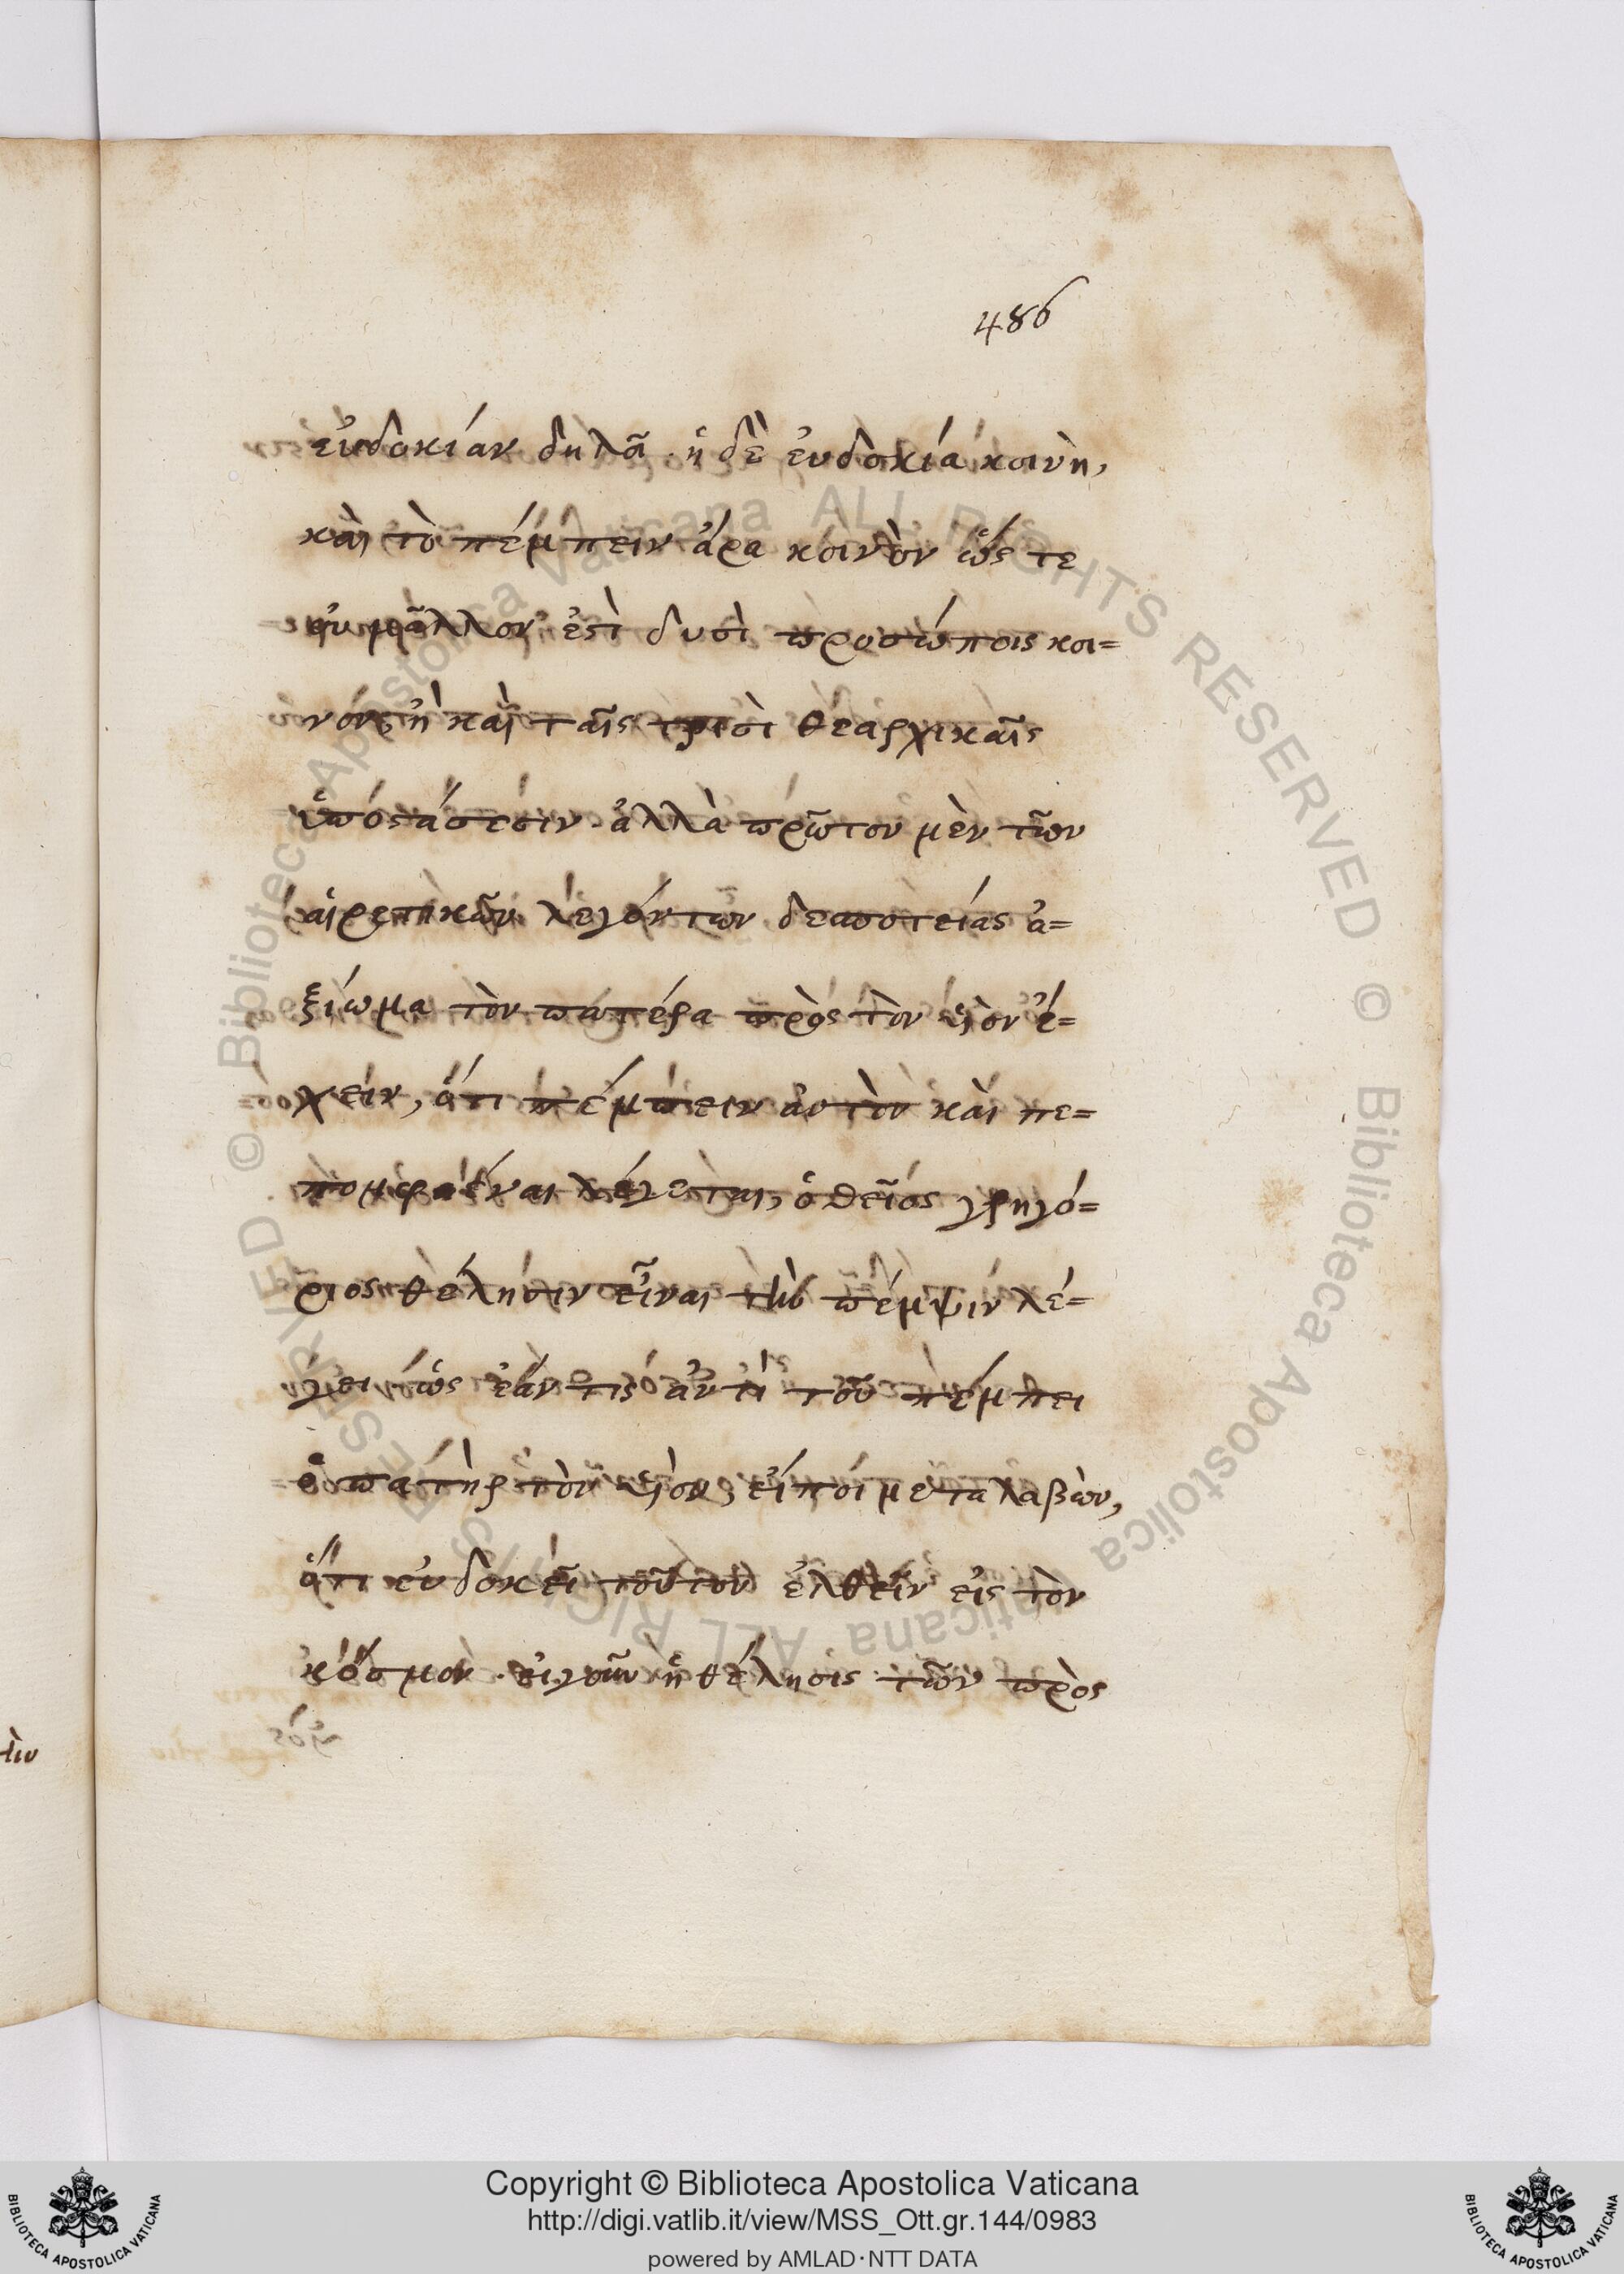 486
εὐδοκίαν δηλᾶ· ἡ δὲ ἐυδοκία κοινὴ,
καὶ τὸ πέμπειν ἄρα κοινὸν ὥς τε
οὐ μᾶλλον ἐστὶ δυσὶ προσώποις κοι=
νόν, ἢ καὶ ταῖς τρισὶ θεαρχικαῖς
ὑποστάσεσιν· ἀλλὰ πρῶτον μὲν τῶν
αἱρετικῶν λεγόντων δεσποτείας ἀ=
ξίωμα τὸν πατέρα πρὸς τὸν υἱὸν ἔ=
χειν, ὅτι πέμπειν ἀυτὸν καὶ πε=
πομφαέναι λέγεται, ὁ θεῖος γρηγό=
ριος θέλησιν εἶναι τὴν πέμψιν λέ=
γει ὡς ἐάν τις ἀντὶ τοῦ πέμπει
ὁ πατὴρ τὸν υἱὸν, εἴποι μεταλαβὼν,
ὅτι εὐδοκεῖ τοῦτον ἐλθεῖν εἰς τὸν
κόσμον· εἰγοῦν ἡ θέλησις τῶν πρὸς
τὴν
Copyright © Biblioteca Apostolica Vaticana
http://digi.vatlib.it/view/MSS_Ott.gr.144/0983
powered by AMLAD·NTT DATA
BIBLIOTECA APOSTOLICA VATICANA
BIBLIOTECA APOSTOLICA VATICANA
© Biblioteca Apostolica Vaticana ALL RIGHTS RESERVED © Biblioteca Apostolica Vaticana ALL RIGHTS RESERVED